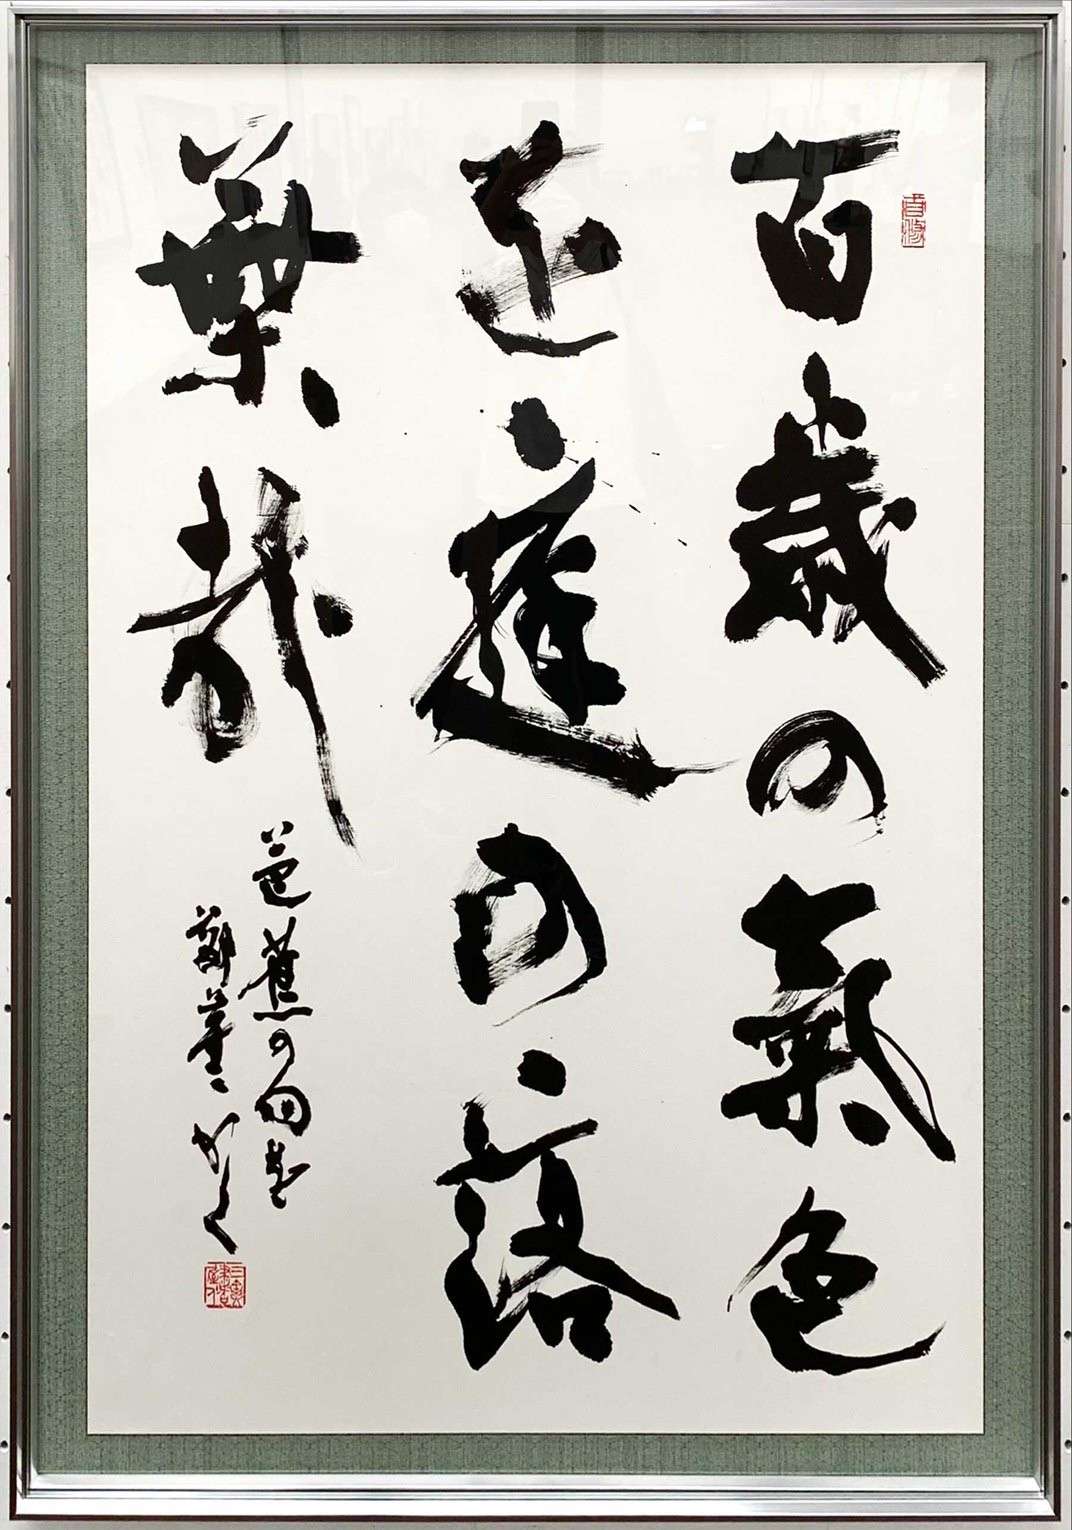 百歳の氣色
を庭の落
葉哉
芭蕉の句を
かく